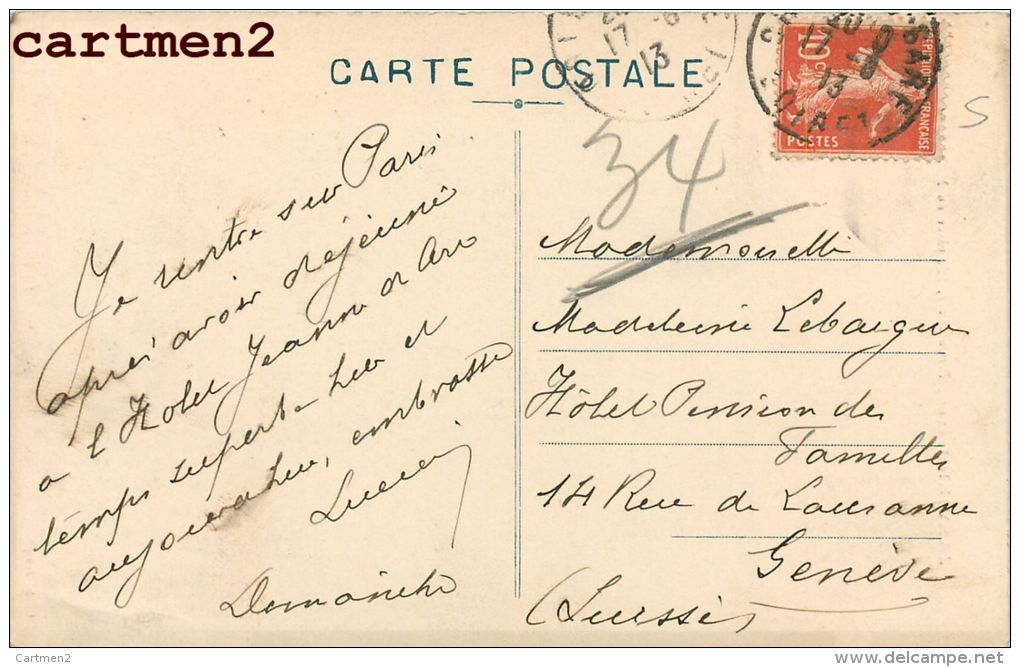 cartmen2
CARTE POSTALE
17
13
10
17
13
REPUBLIQUE FRANÇAISE
POSTES
S
34
Je rentre sur Paris
après avoir déjeuné
a l'Hotel Jeanne d'Arc
temps superbe
aujourd'hui, embrasse
Lucien
Dimanche
Mademoiselle
Madeleine Lebaigue
Hôtel Pension des
Familles
14 Rue de Lausanne
Genève
(Suisse)
Cartmen2
www.delcampe.net